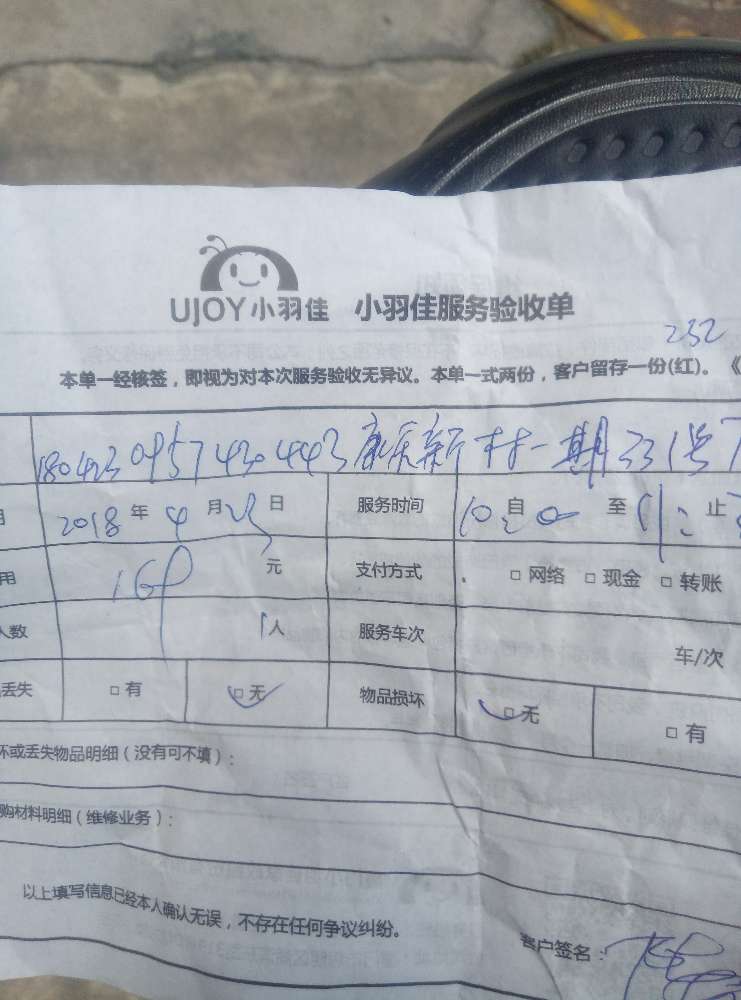 UJOY小羽佳 小羽佳服务验收单
232
本单一经核签，即视为对本次服务验收无异议。本单一式两份，客户留存一份(红)。《
1804230957430443康庆新村一期331号
2018年4月23日 服务时间 10:20自 至 止
用 168元 支付方式 □网络 □现金 □转账
人数 1人 服务车次 车/次
丢失 □有 □无 物品损坏 □无 □有
坏或丢失物品明细（没有可不填）：
购材料明细（维修业务）：
以上填写信息已经本人确认无误，不存在任何争议纠纷。
客户签名：